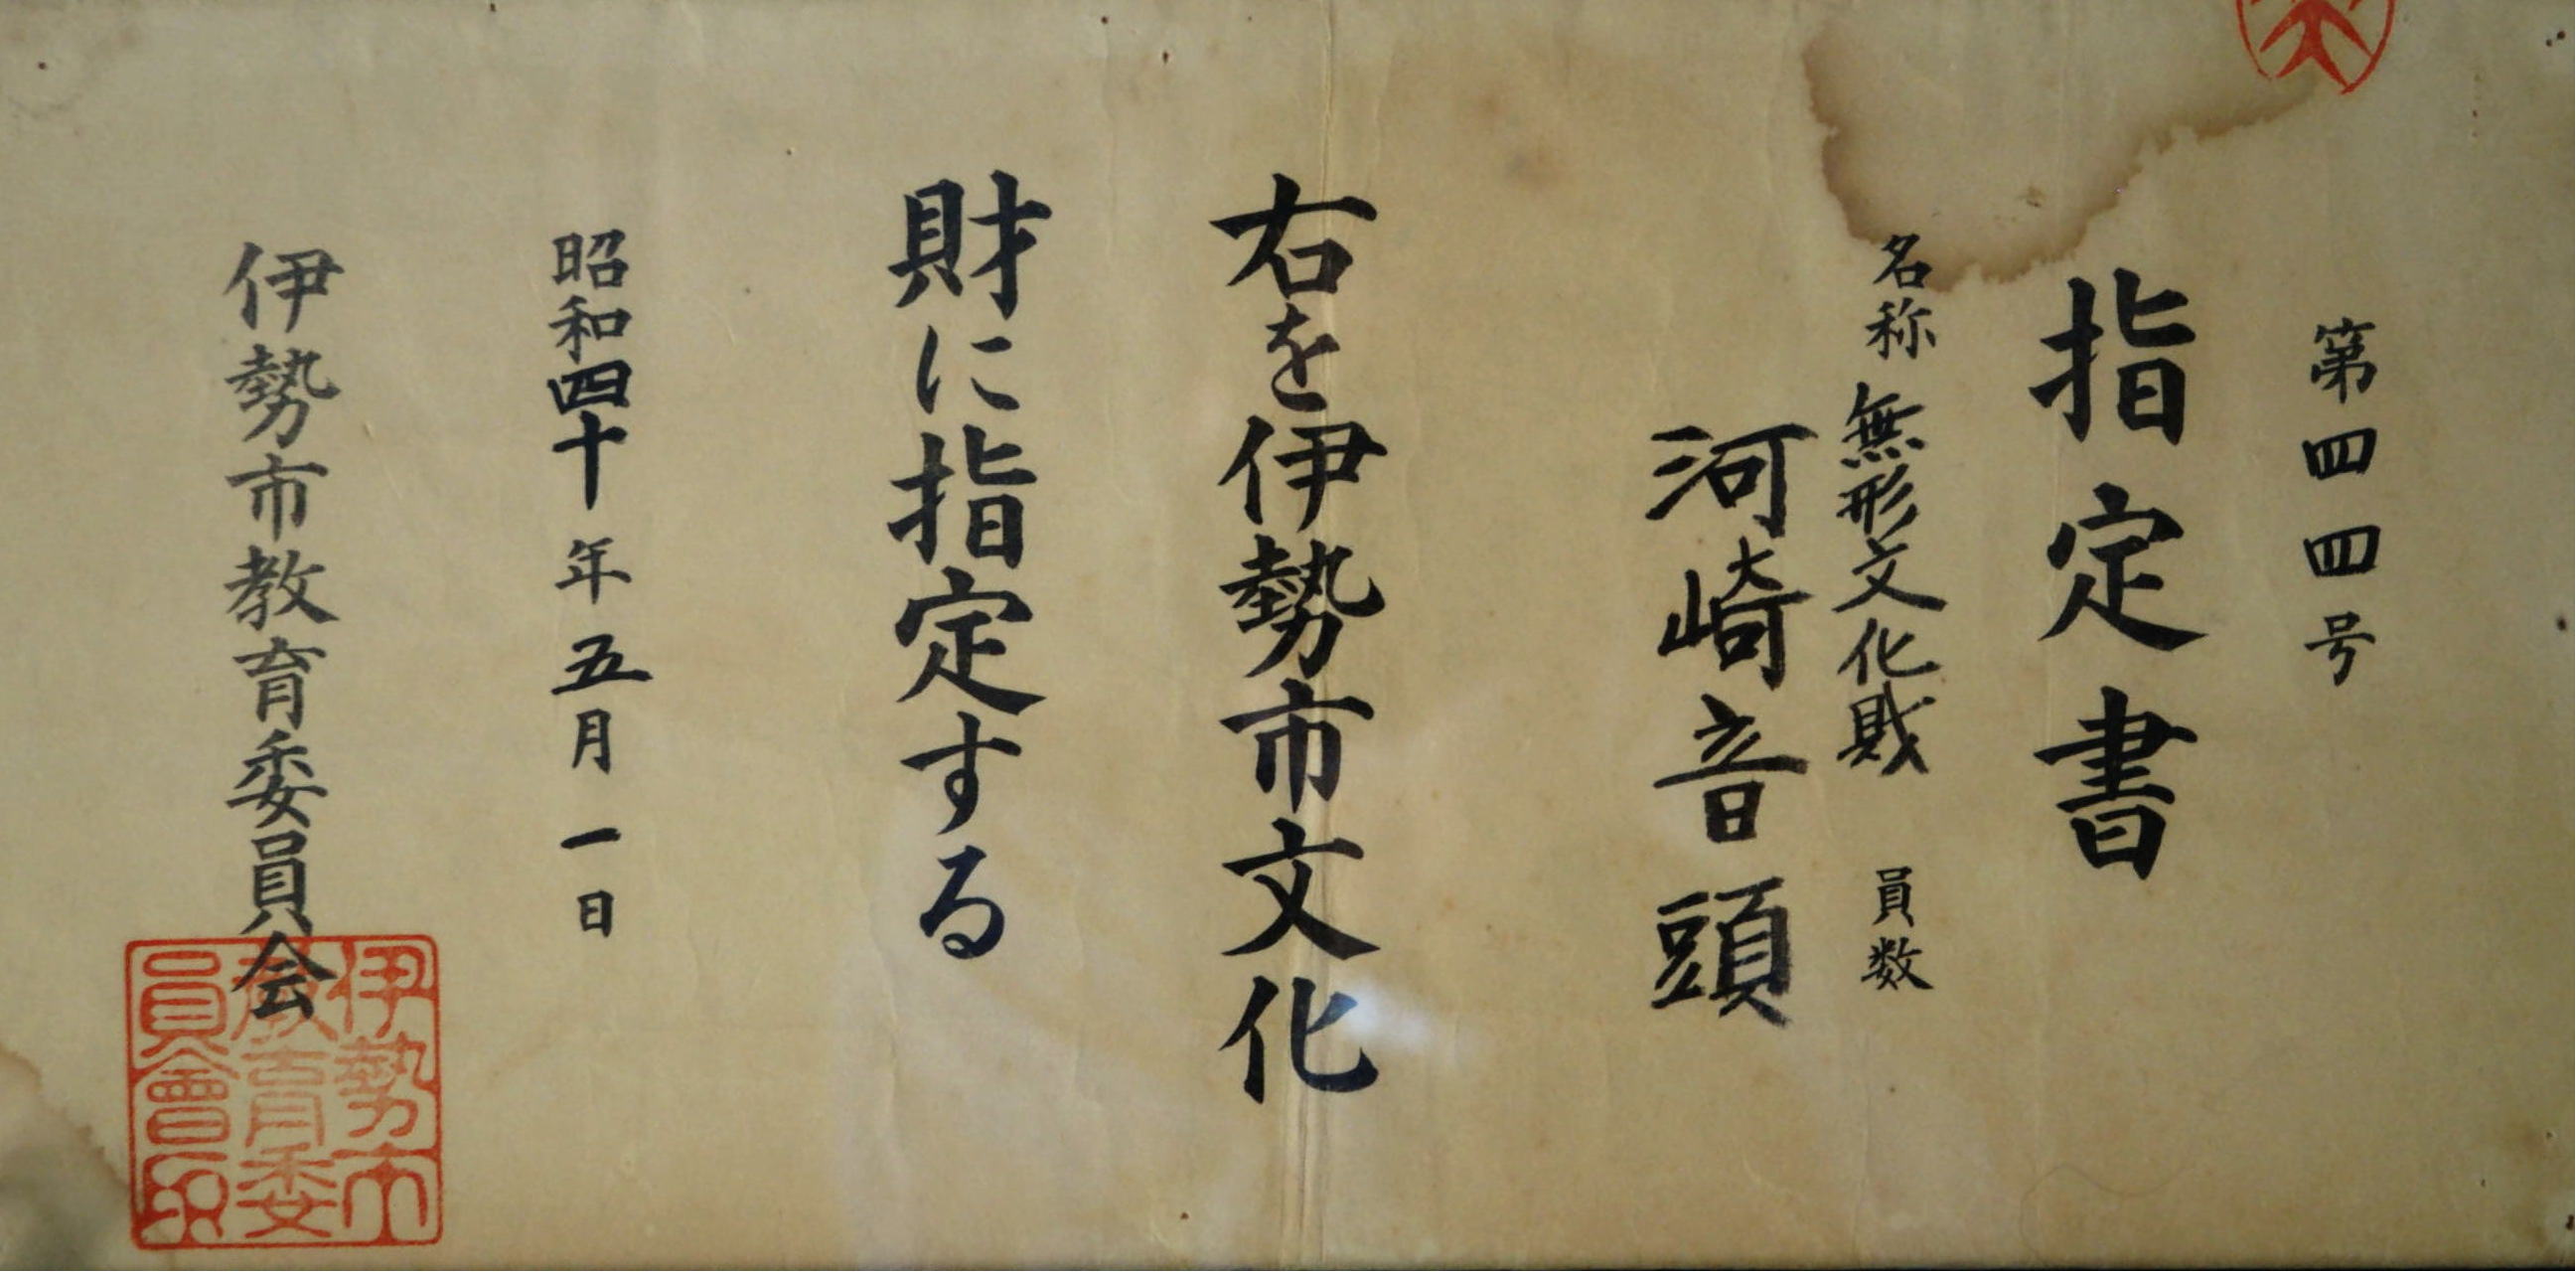 第四四号
指定書
名称 無形文化財 員数
河崎音頭
右を伊勢市文化
財に指定する
昭和四十年五月一日
伊勢市教育委員会
伊勢市
教育委
員會印